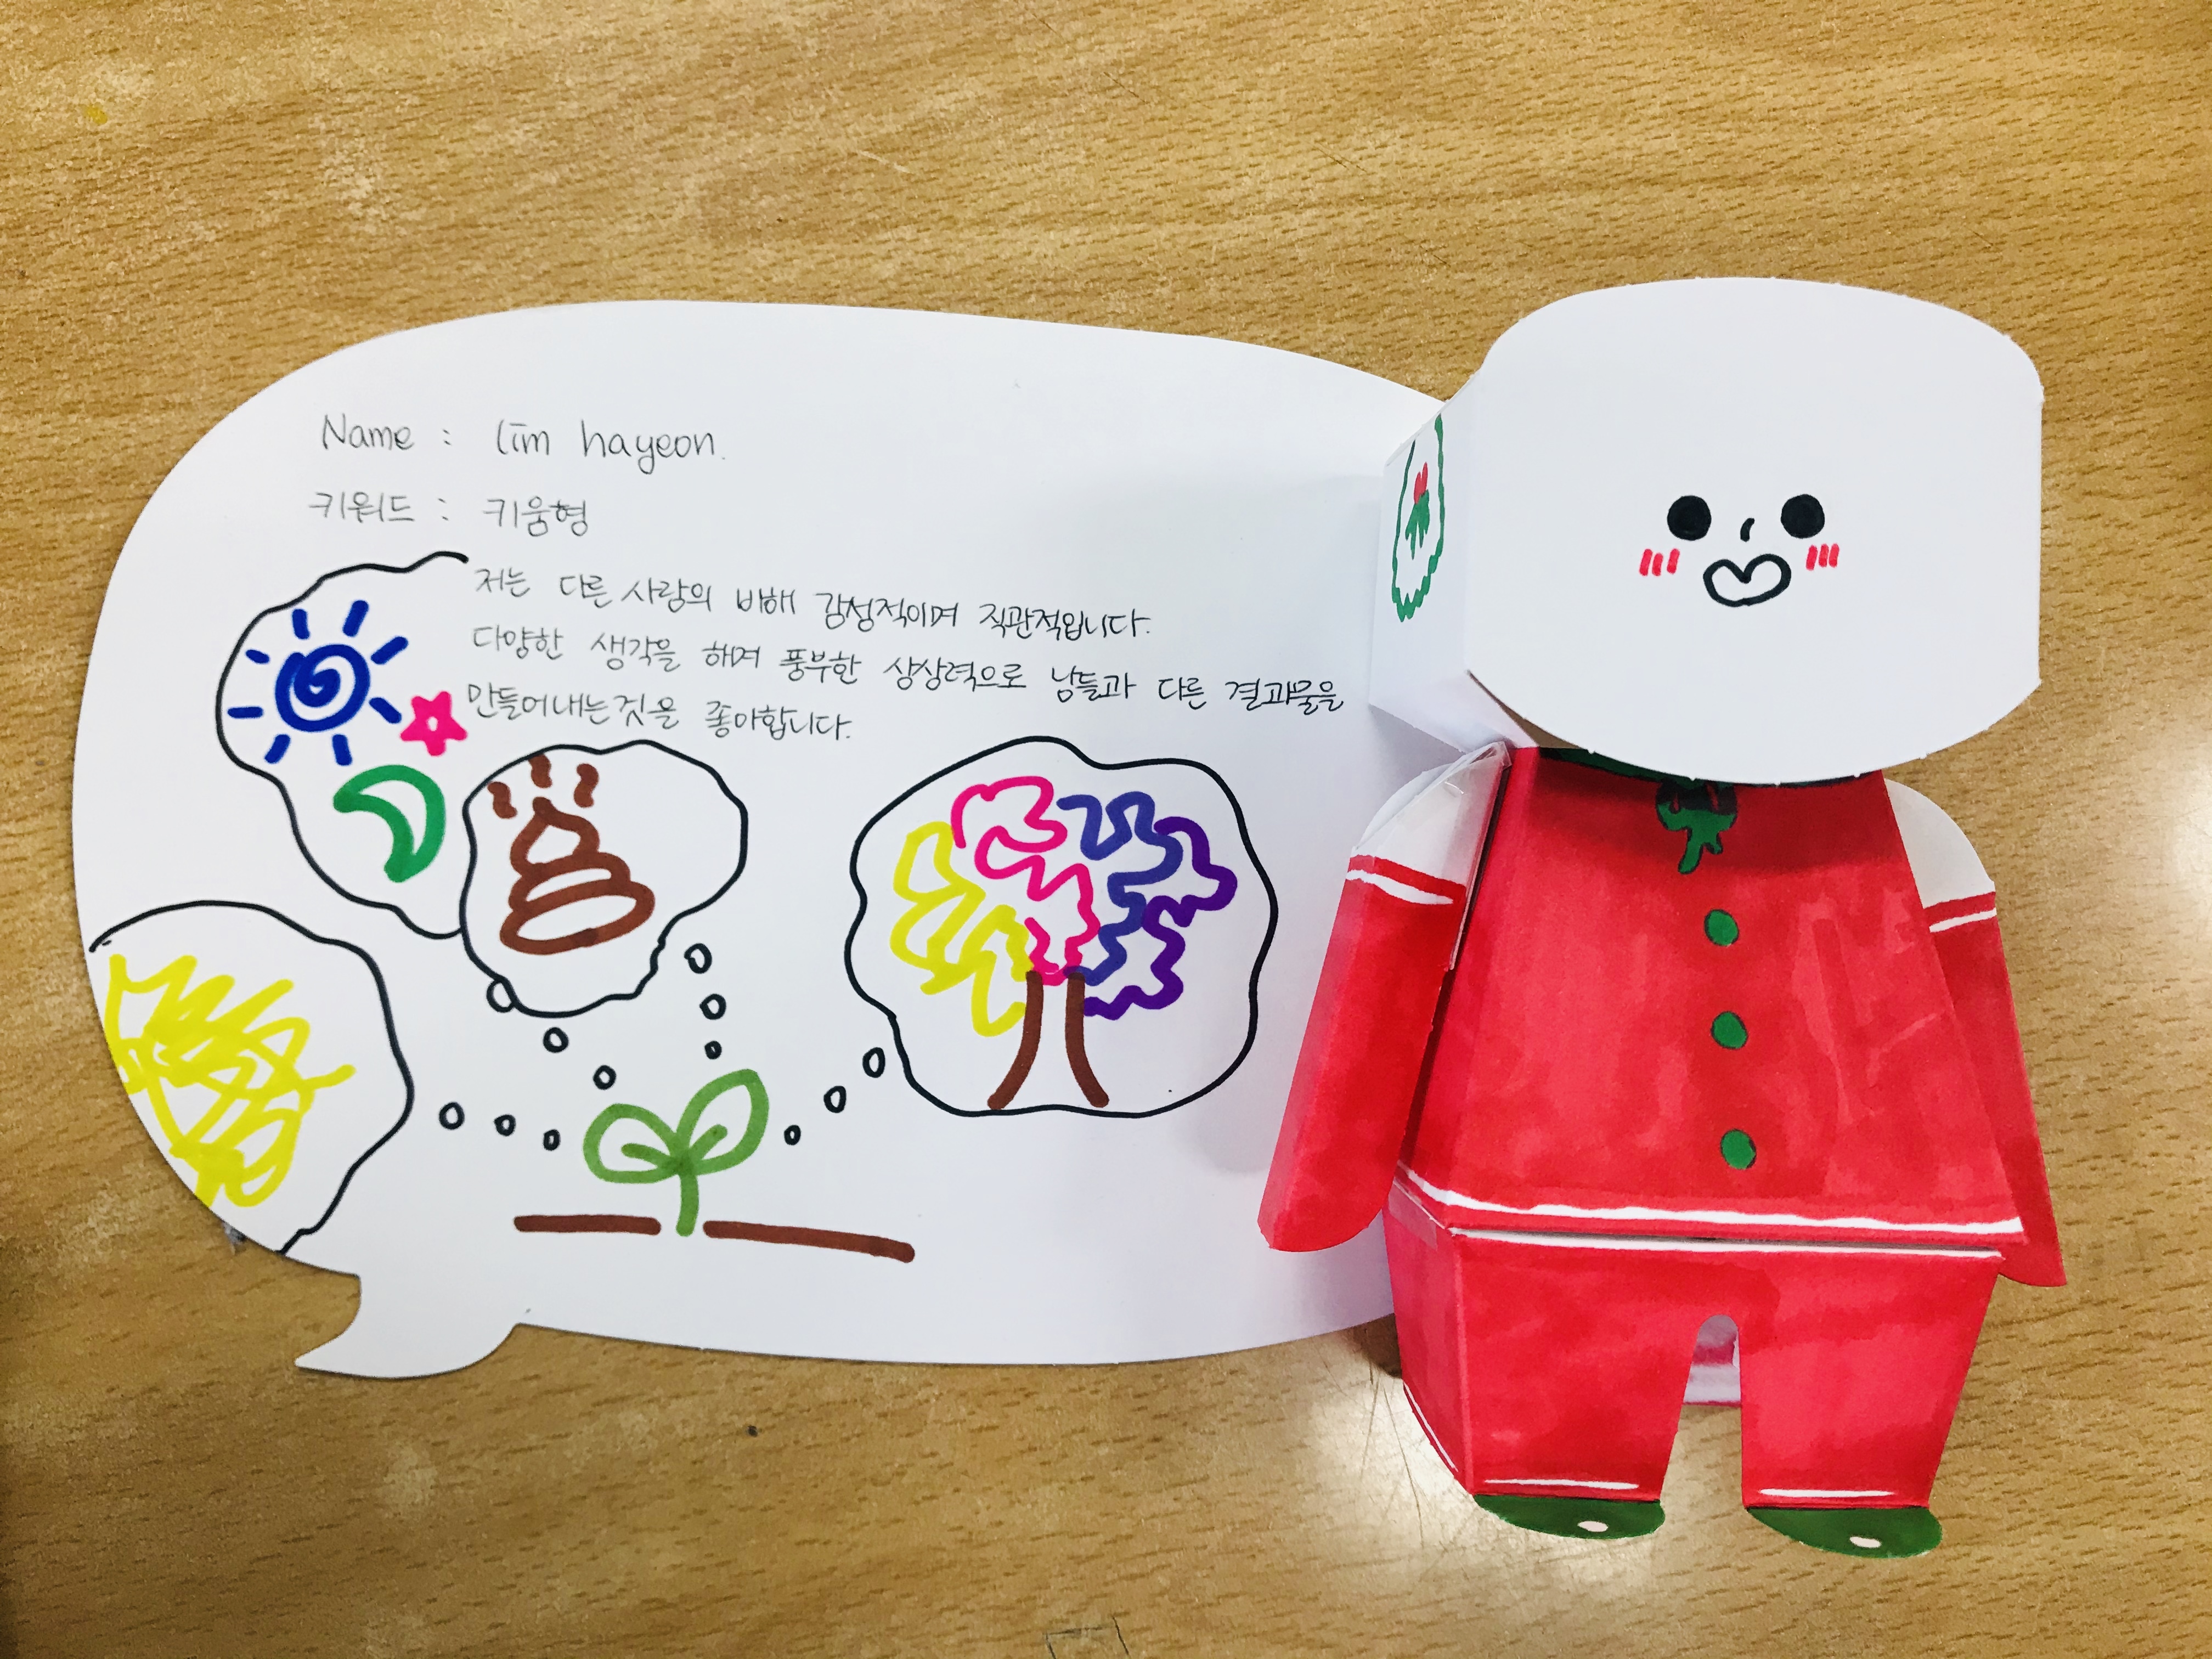 Name : lim hayeon.
키워드 : 키움형
저는 다른 사람의 비해 감성적이며 직관적입니다.
다양한 생각을 하며 풍부한 상상력으로 남들과 다른 결과물을
만들어내는것을 좋아합니다.